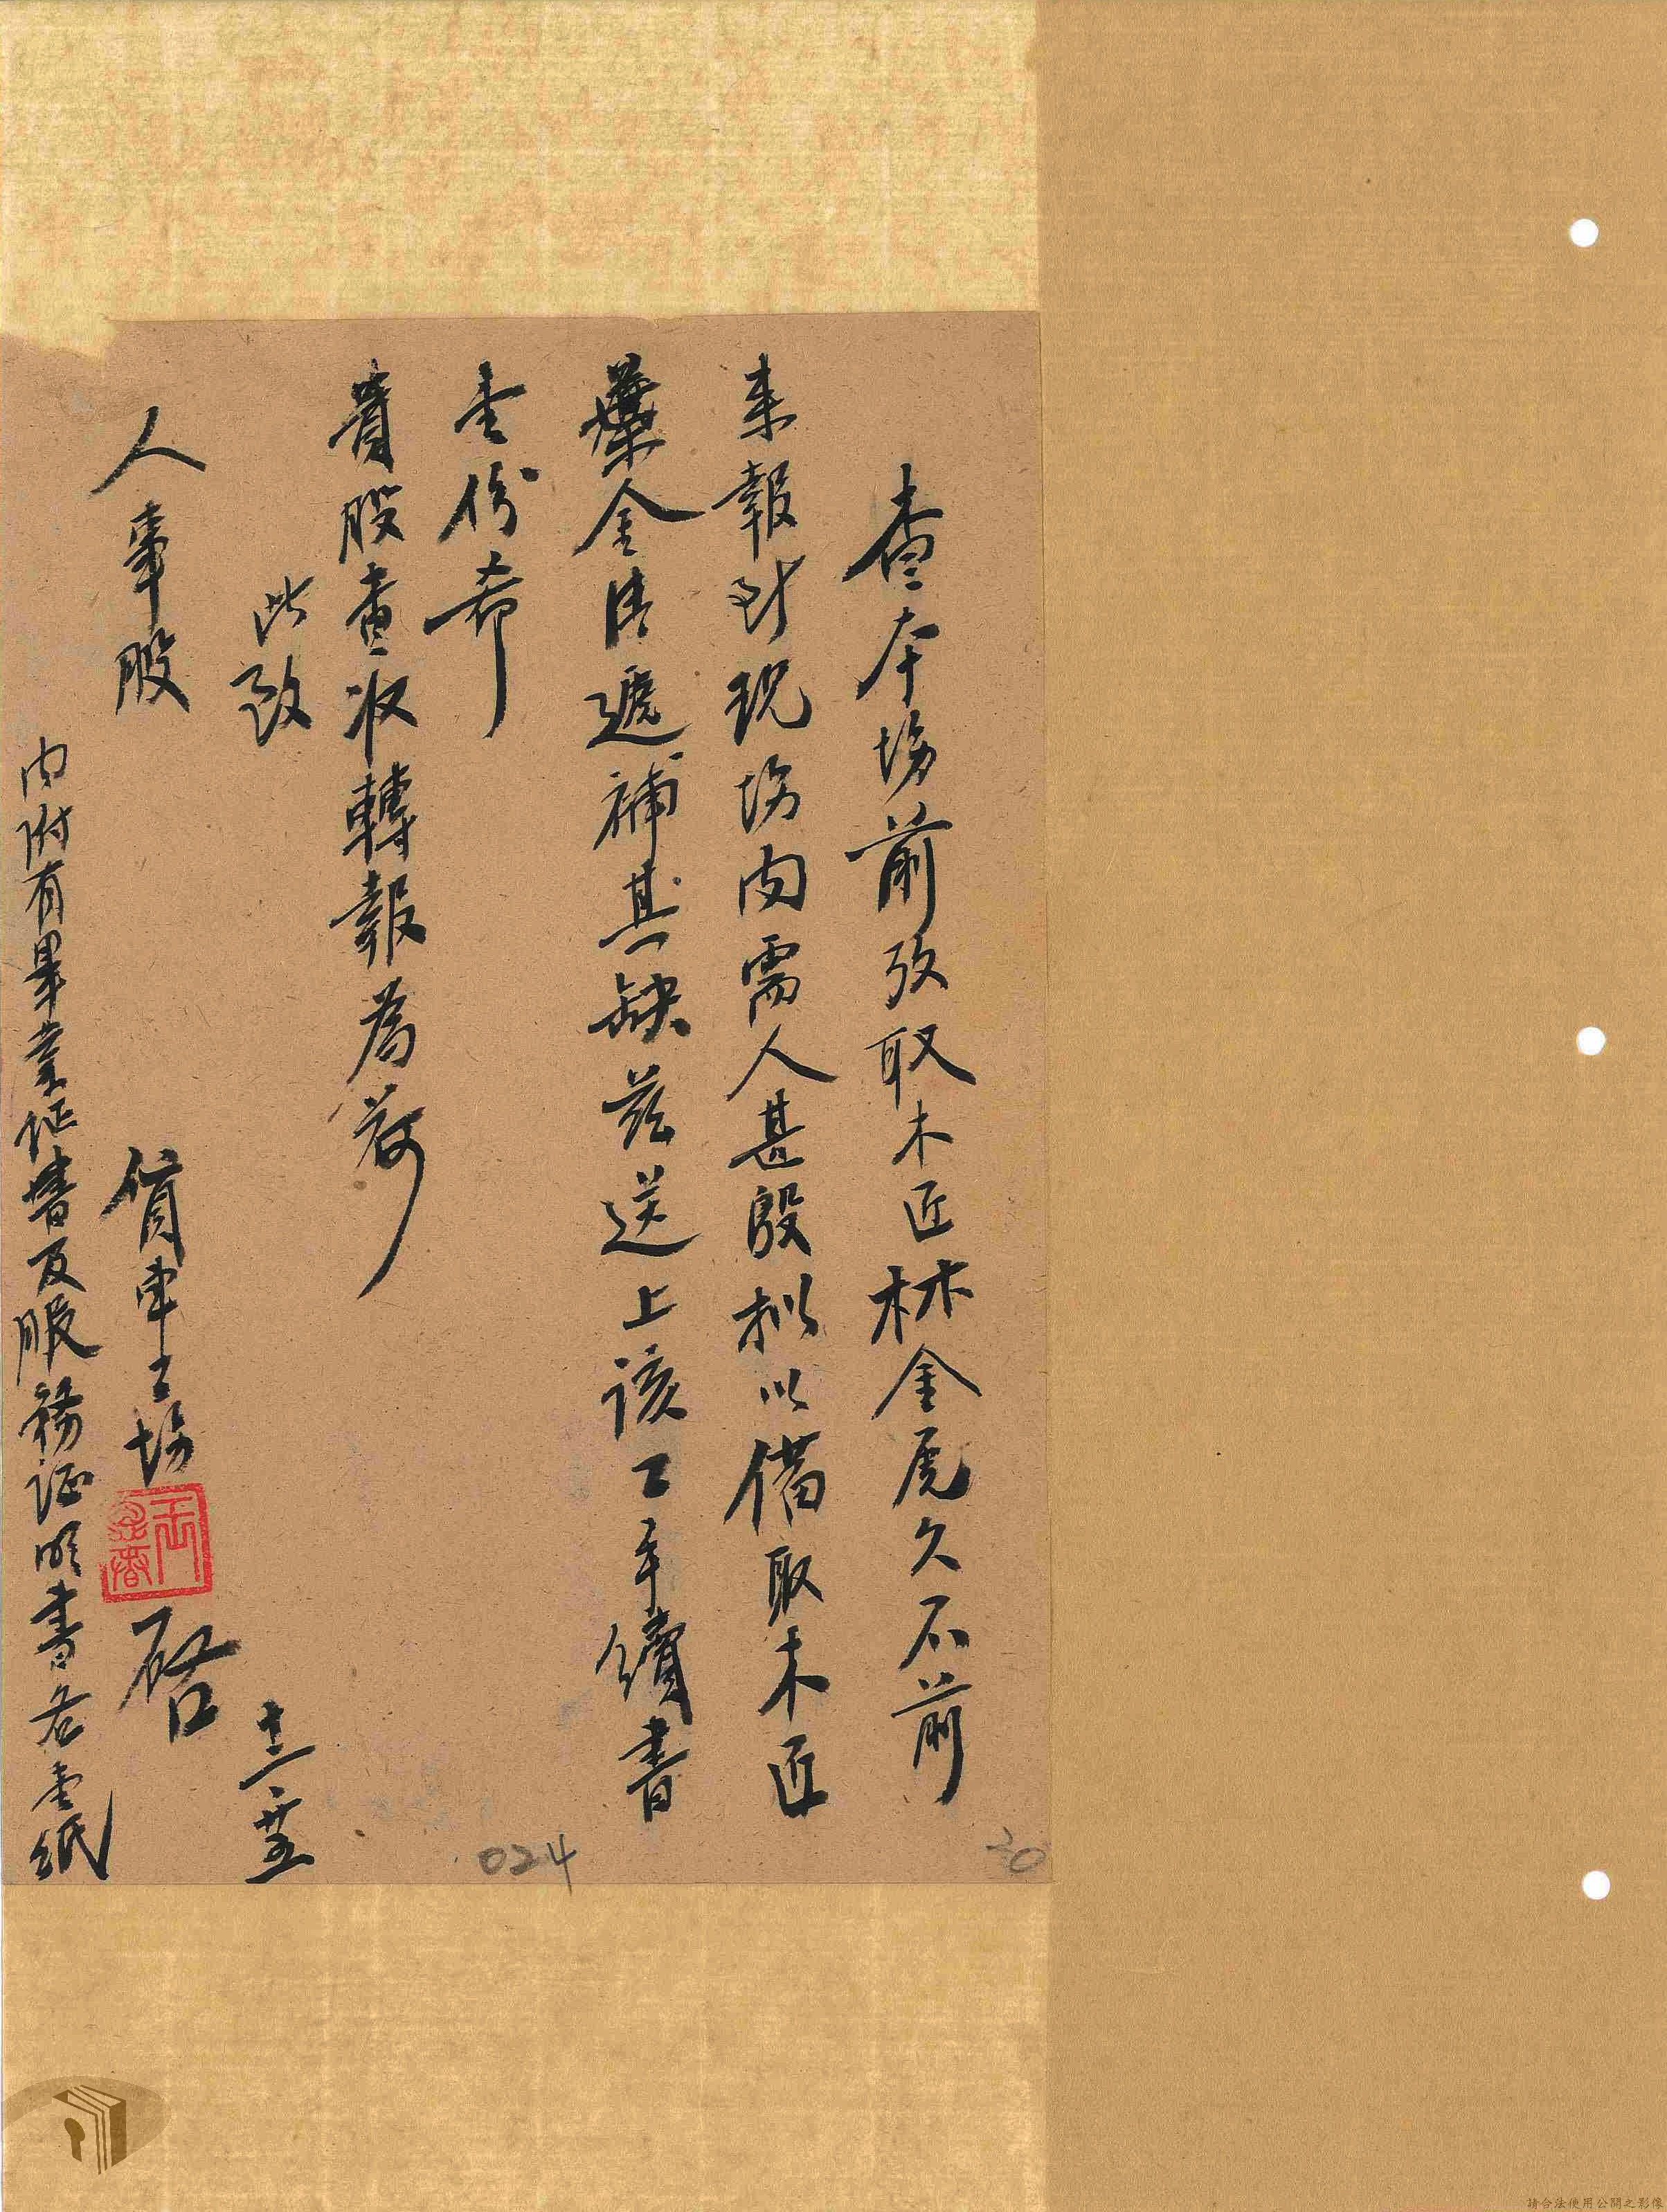 查本場前攷取木匠林金虎久不前
來報到現場內需人甚殷擬以備取木匠
葉金清遞補其缺茲送上該工手續書
壹份希
貴股查收轉報為荷
此致
人事股
貨車工場 啓
十二.廿五
內附有畢業证書及服務证明書各壹紙
024
20
請合法使用公開之影像